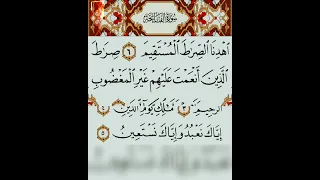 سُورَةُ الفَاتِحَةِ
ٱهْدِنَا ٱلصِّرَٰطَ ٱلْمُسْتَقِيمَ ٦ صِرَٰطَ
ٱلَّذِينَ أَنْعَمْتَ عَلَيْهِمْ غَيْرِ ٱلْمَغْضُوبِ
ٱلرَّحِيمِ ٣ مَٰلِكِ يَوْمِ ٱلدِّينِ ٤
إِيَّاكَ نَعْبُدُ وَإِيَّاكَ نَسْتَعِينُ ٥